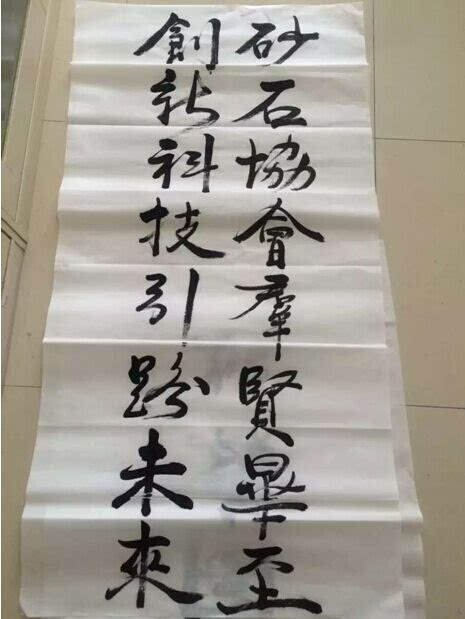 砂石協會羣賢畢至
創新科技引路未來